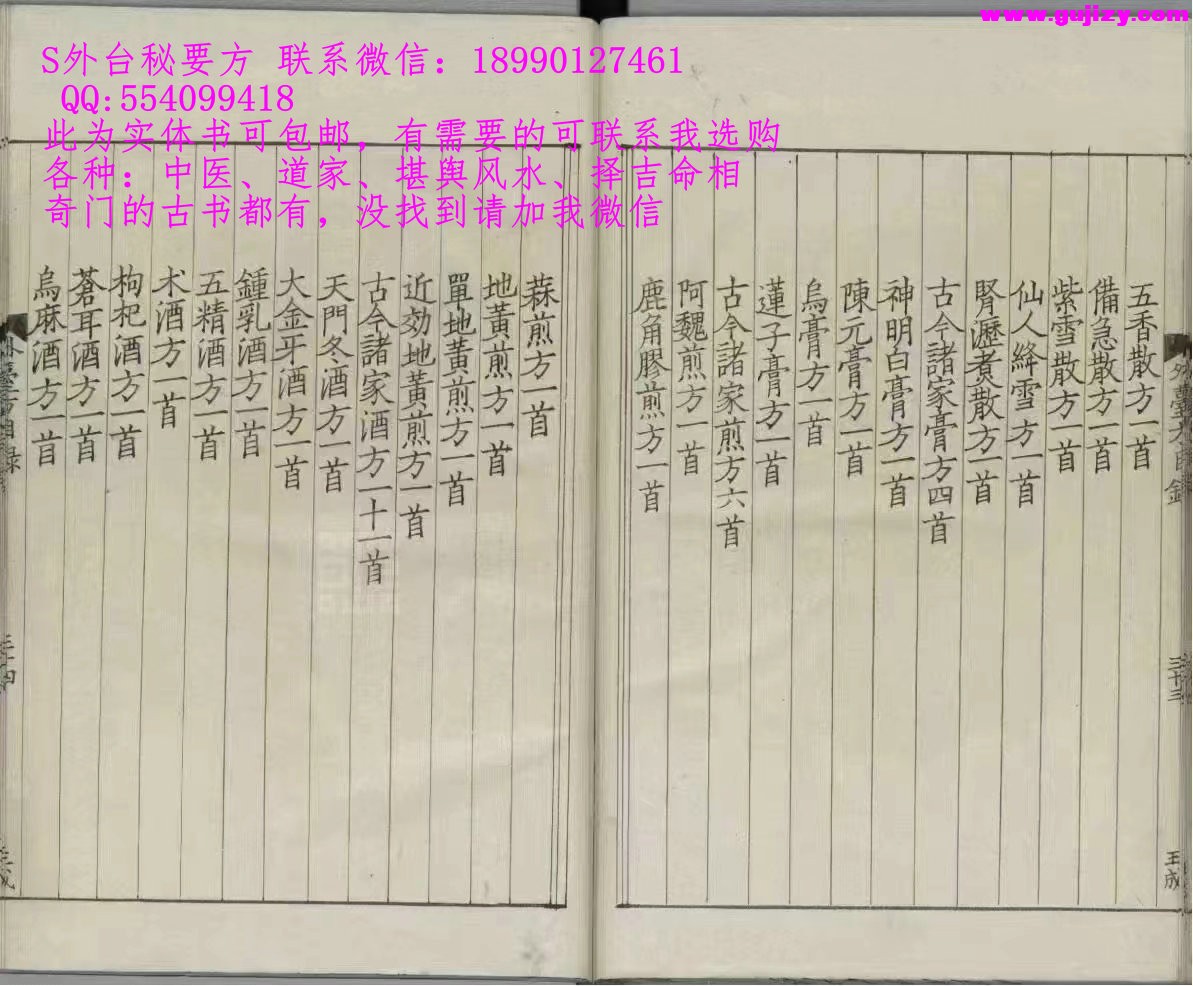 www.gujizy.com
S外台秘要方 联系微信：18990127461
QQ:554099418
此为实体书可包邮，有需要的可联系我选购
各种：中医、道家、堪舆风水、择吉命相
奇门的古书都有，没找到请加我微信
五香散方一首
備急散方一首
紫雪散方一首
仙人絳雪方一首
腎瀝煑散方一首
古今諸家膏方四首
神明白膏方一首
陳元膏方一首
烏膏方一首
蓮子膏方一首
古今諸家煎方六首
阿魏煎方一首
鹿角膠煎方一首
蒜煎方一首
地黃煎方一首
單地黃煎方一首
近効地黃煎方一首
古今諸家酒方一十一首
天門冬酒方一首
大金牙酒方一首
鍾乳酒方一首
五精酒方一首
术酒方一首
枸杞酒方一首
蒼耳酒方一首
烏麻酒方一首
外臺方目録
三十三
王成